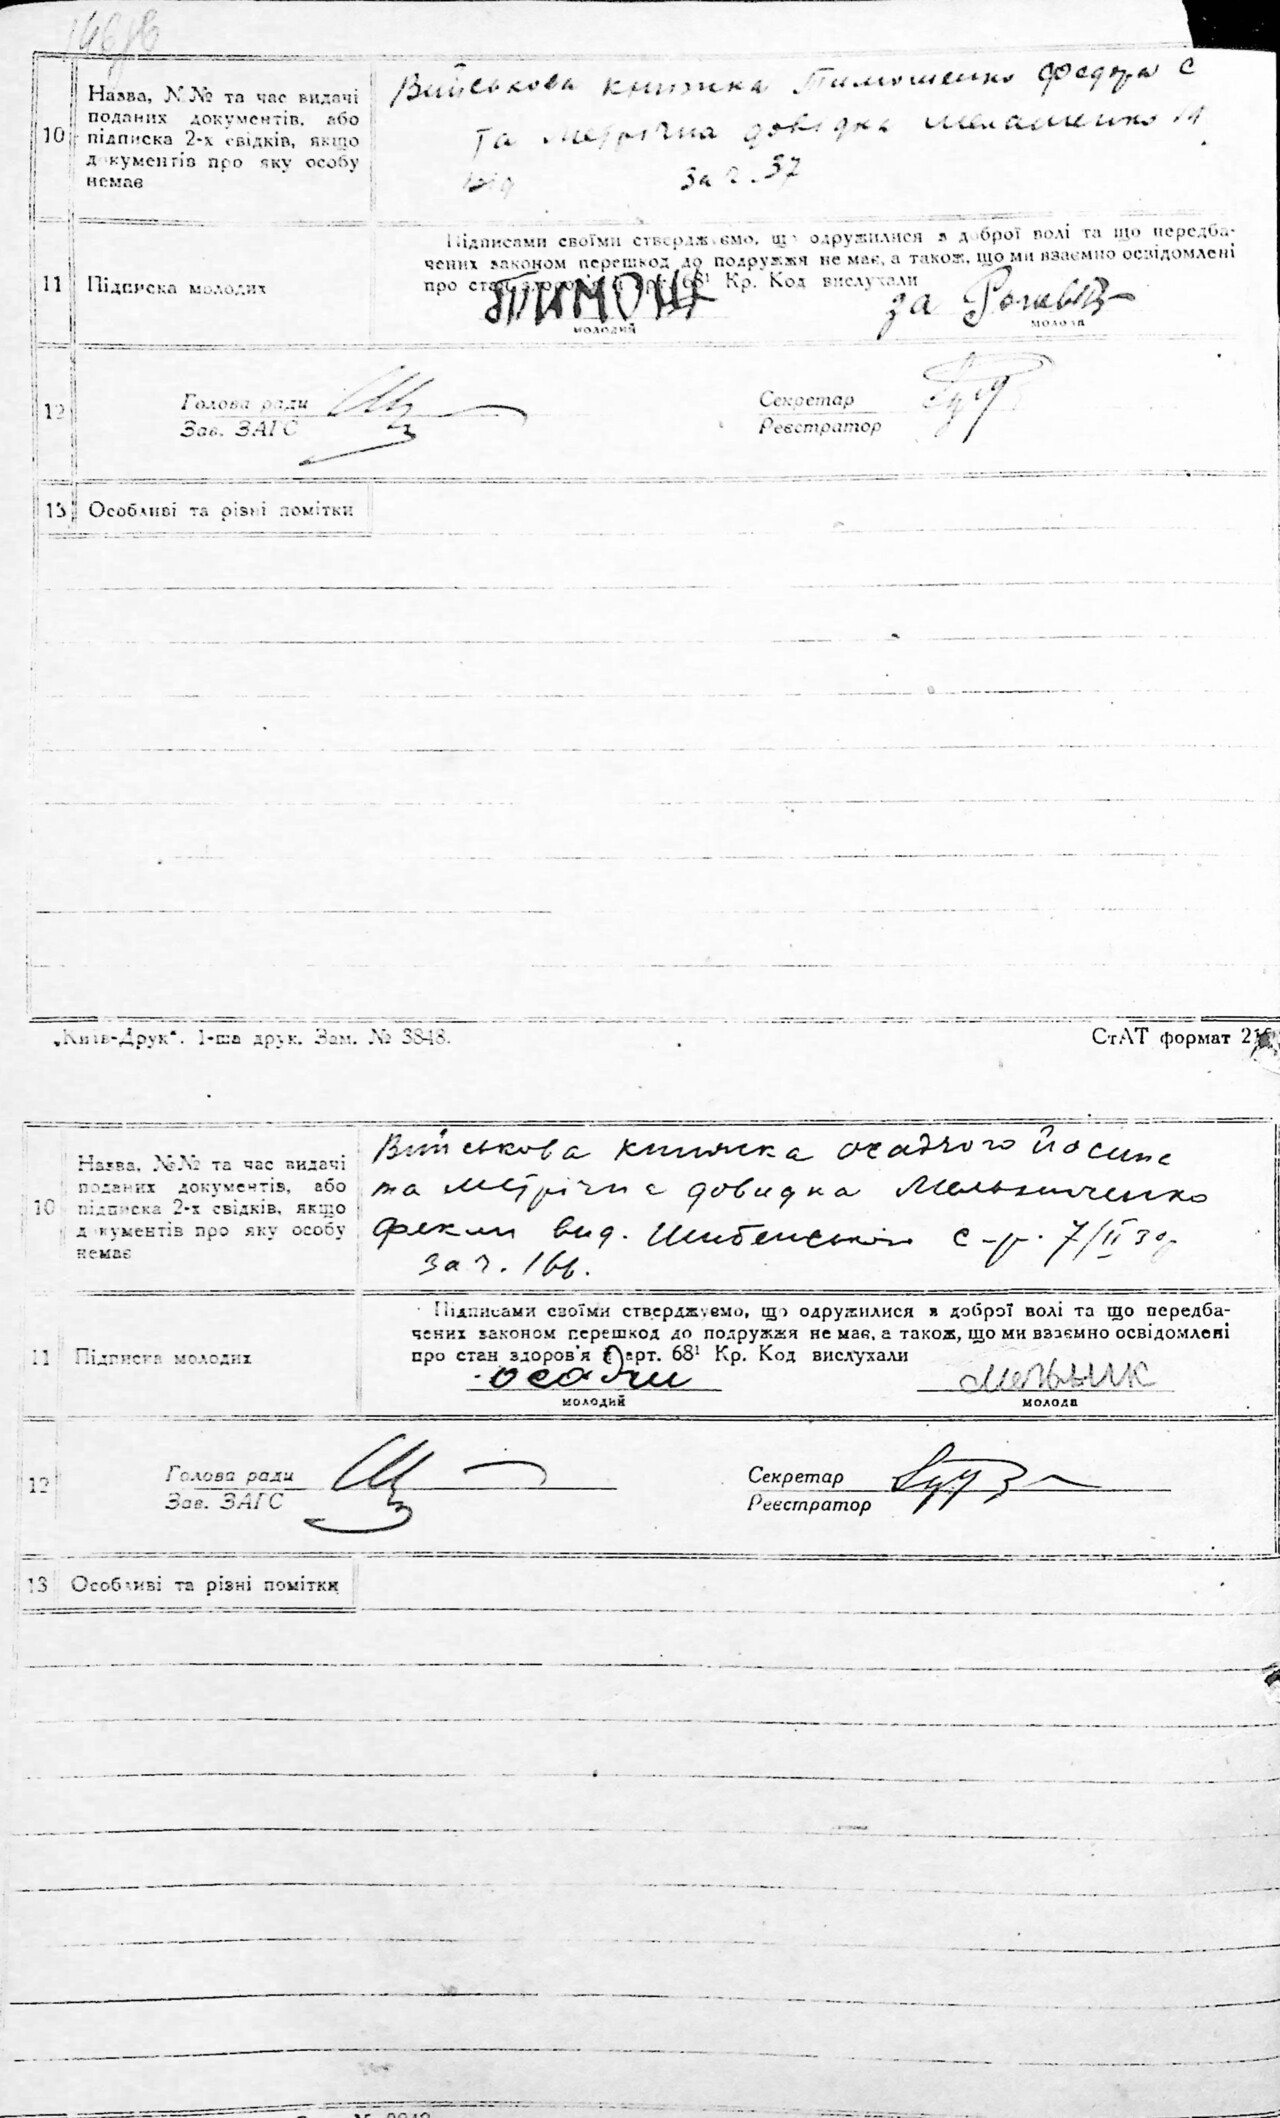 10
Назва, №№ та час видачі
поданих документів, або
підписка 2-х свідків, якщо
документів про яку особу
немає
Військова книжка Тимошенко Федора С
та метрічна довідка
від за ч. 37
11
Підписка молодих
Підписами своїми стверджуємо, що одружилися з доброї волі та що передба-
чених законом перешкод до подружжя не має, а також, що ми взаємно освідомлені
про стан здоров'я арт. 68¹ Кр. Код вислухали
ТИМОШ
молодий
за
молода
12
Голова ради
Зав. ЗАГС
Секретар
Реєстратор
13
Особливі та різні помітки
„Київ-Друк“. 1-ша друк. Зам. № 3848.
СтАТ формат
10
Назва, №№ та час видачі
поданих документів, або
підписка 2-х свідків, якщо
документів про яку особу
немає
Військова книжка осадчого Йосипа
та метрічна довидка Мельниченко
фекли вид. Шибенською с-р. 7/II 39
за ч. 166.
11
Підписка молодих
Підписами своїми стверджуємо, що одружилися з доброї волі та що передба-
чених законом перешкод до подружжя не має, а також, що ми взаємно освідомлені
про стан здоров'я арт. 68¹ Кр. Код вислухали
осадчи
молодий
мельник
молода
12
Голова ради
Зав. ЗАГС
Секретар
Реєстратор
13
Особливі та різні помітки